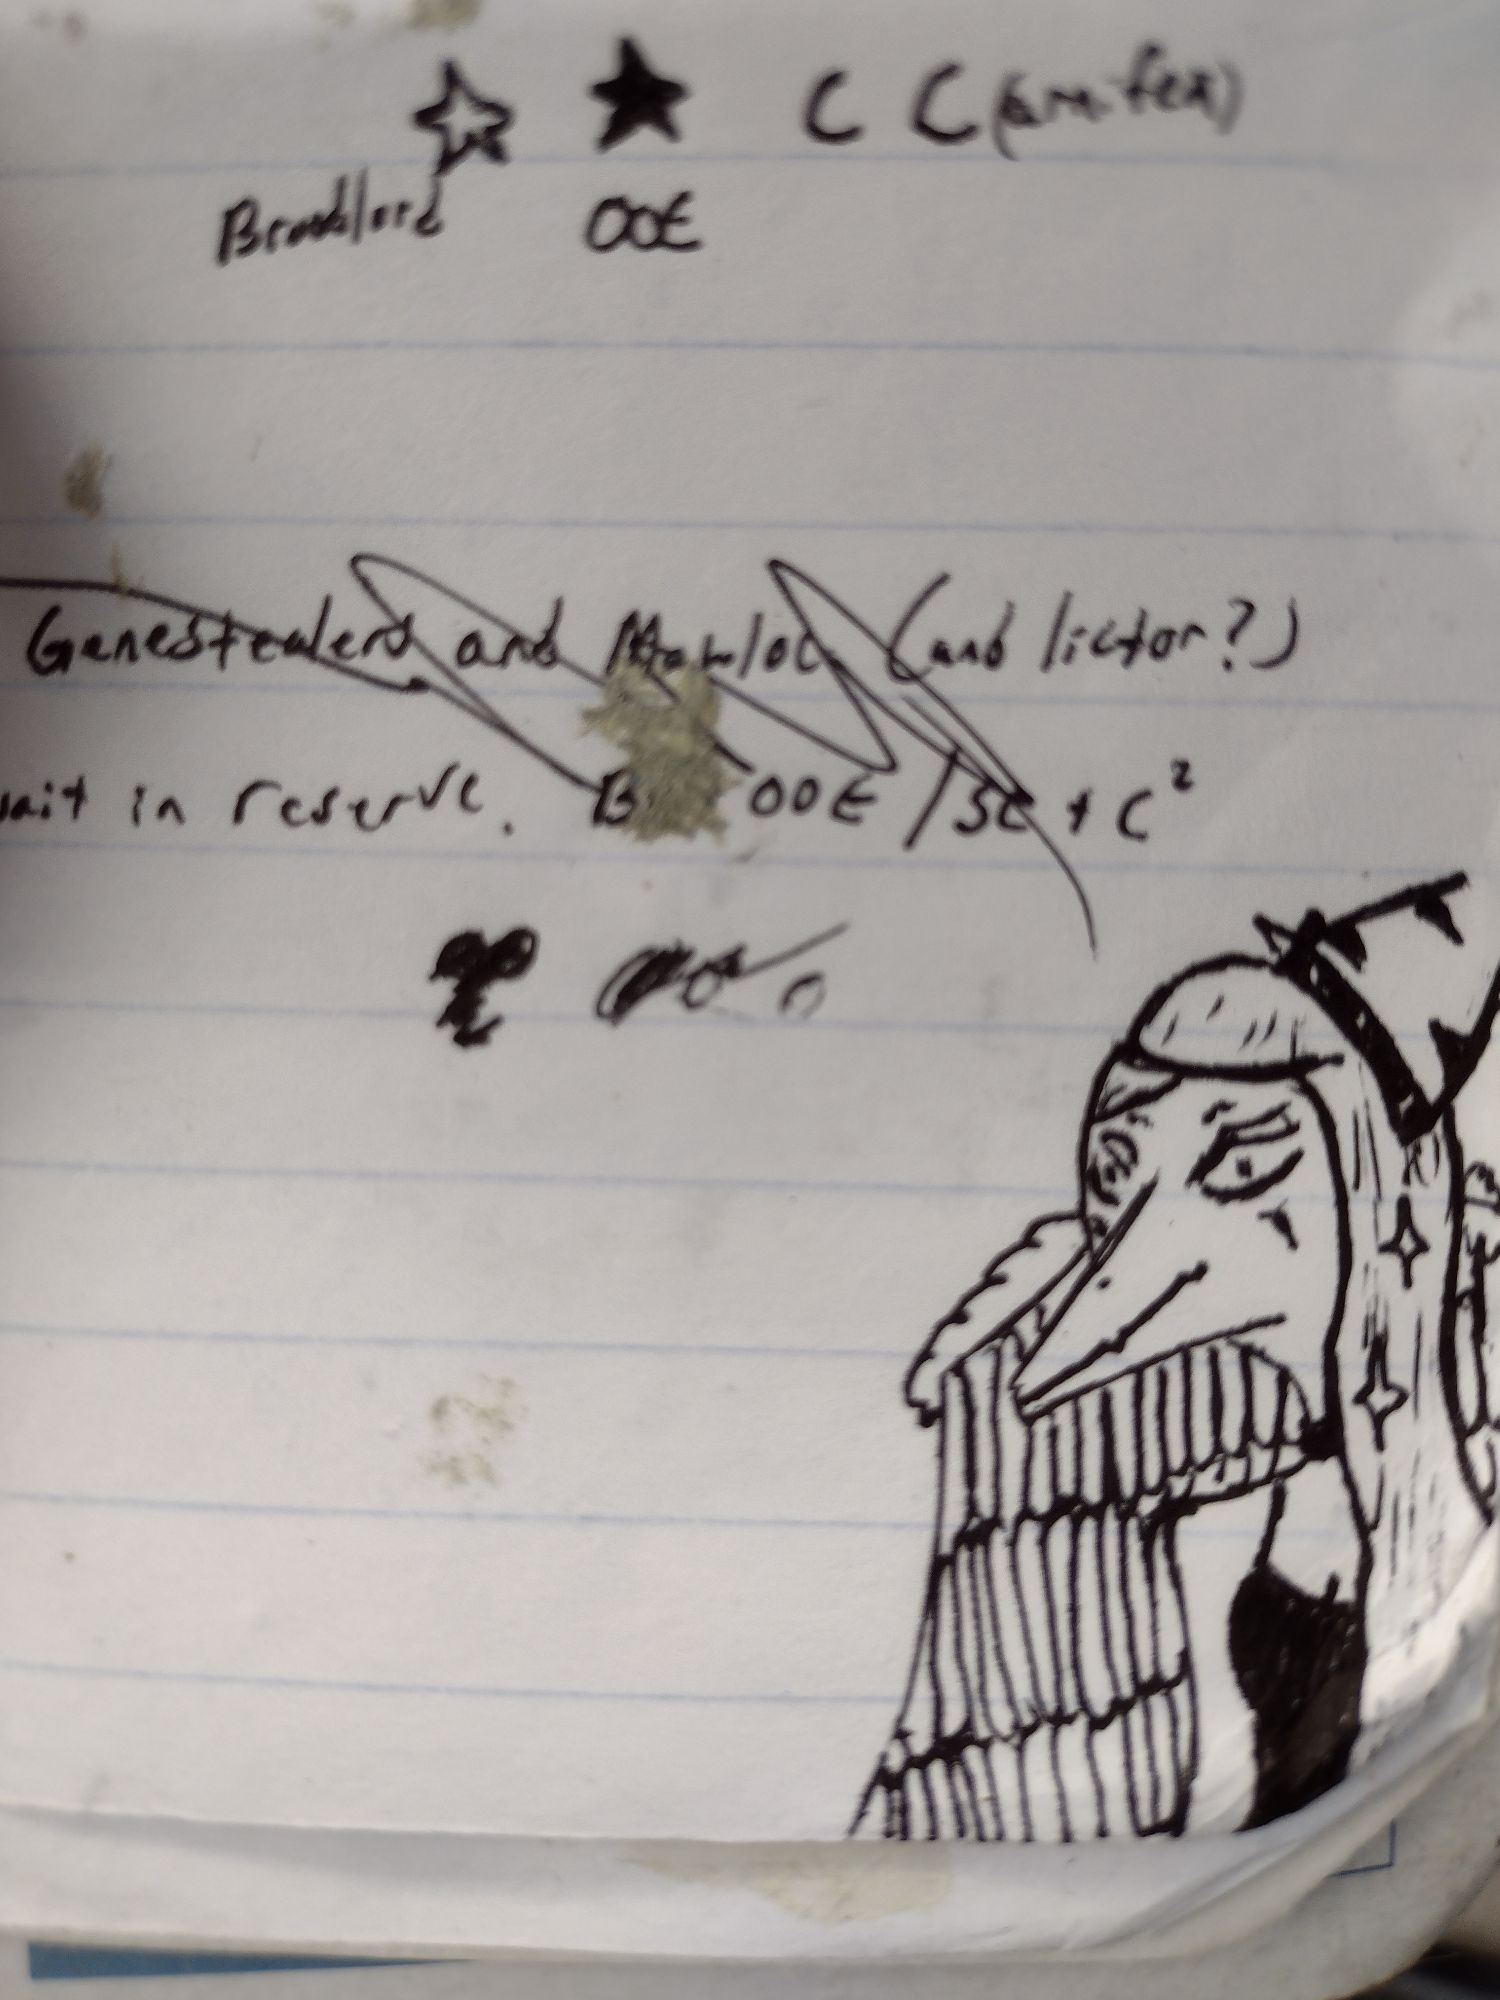 C C(arnifex)
Broodlord OOE
Genestealers and Mawloc (and lictor?)
wait in reserve. B OOE / SC + C²